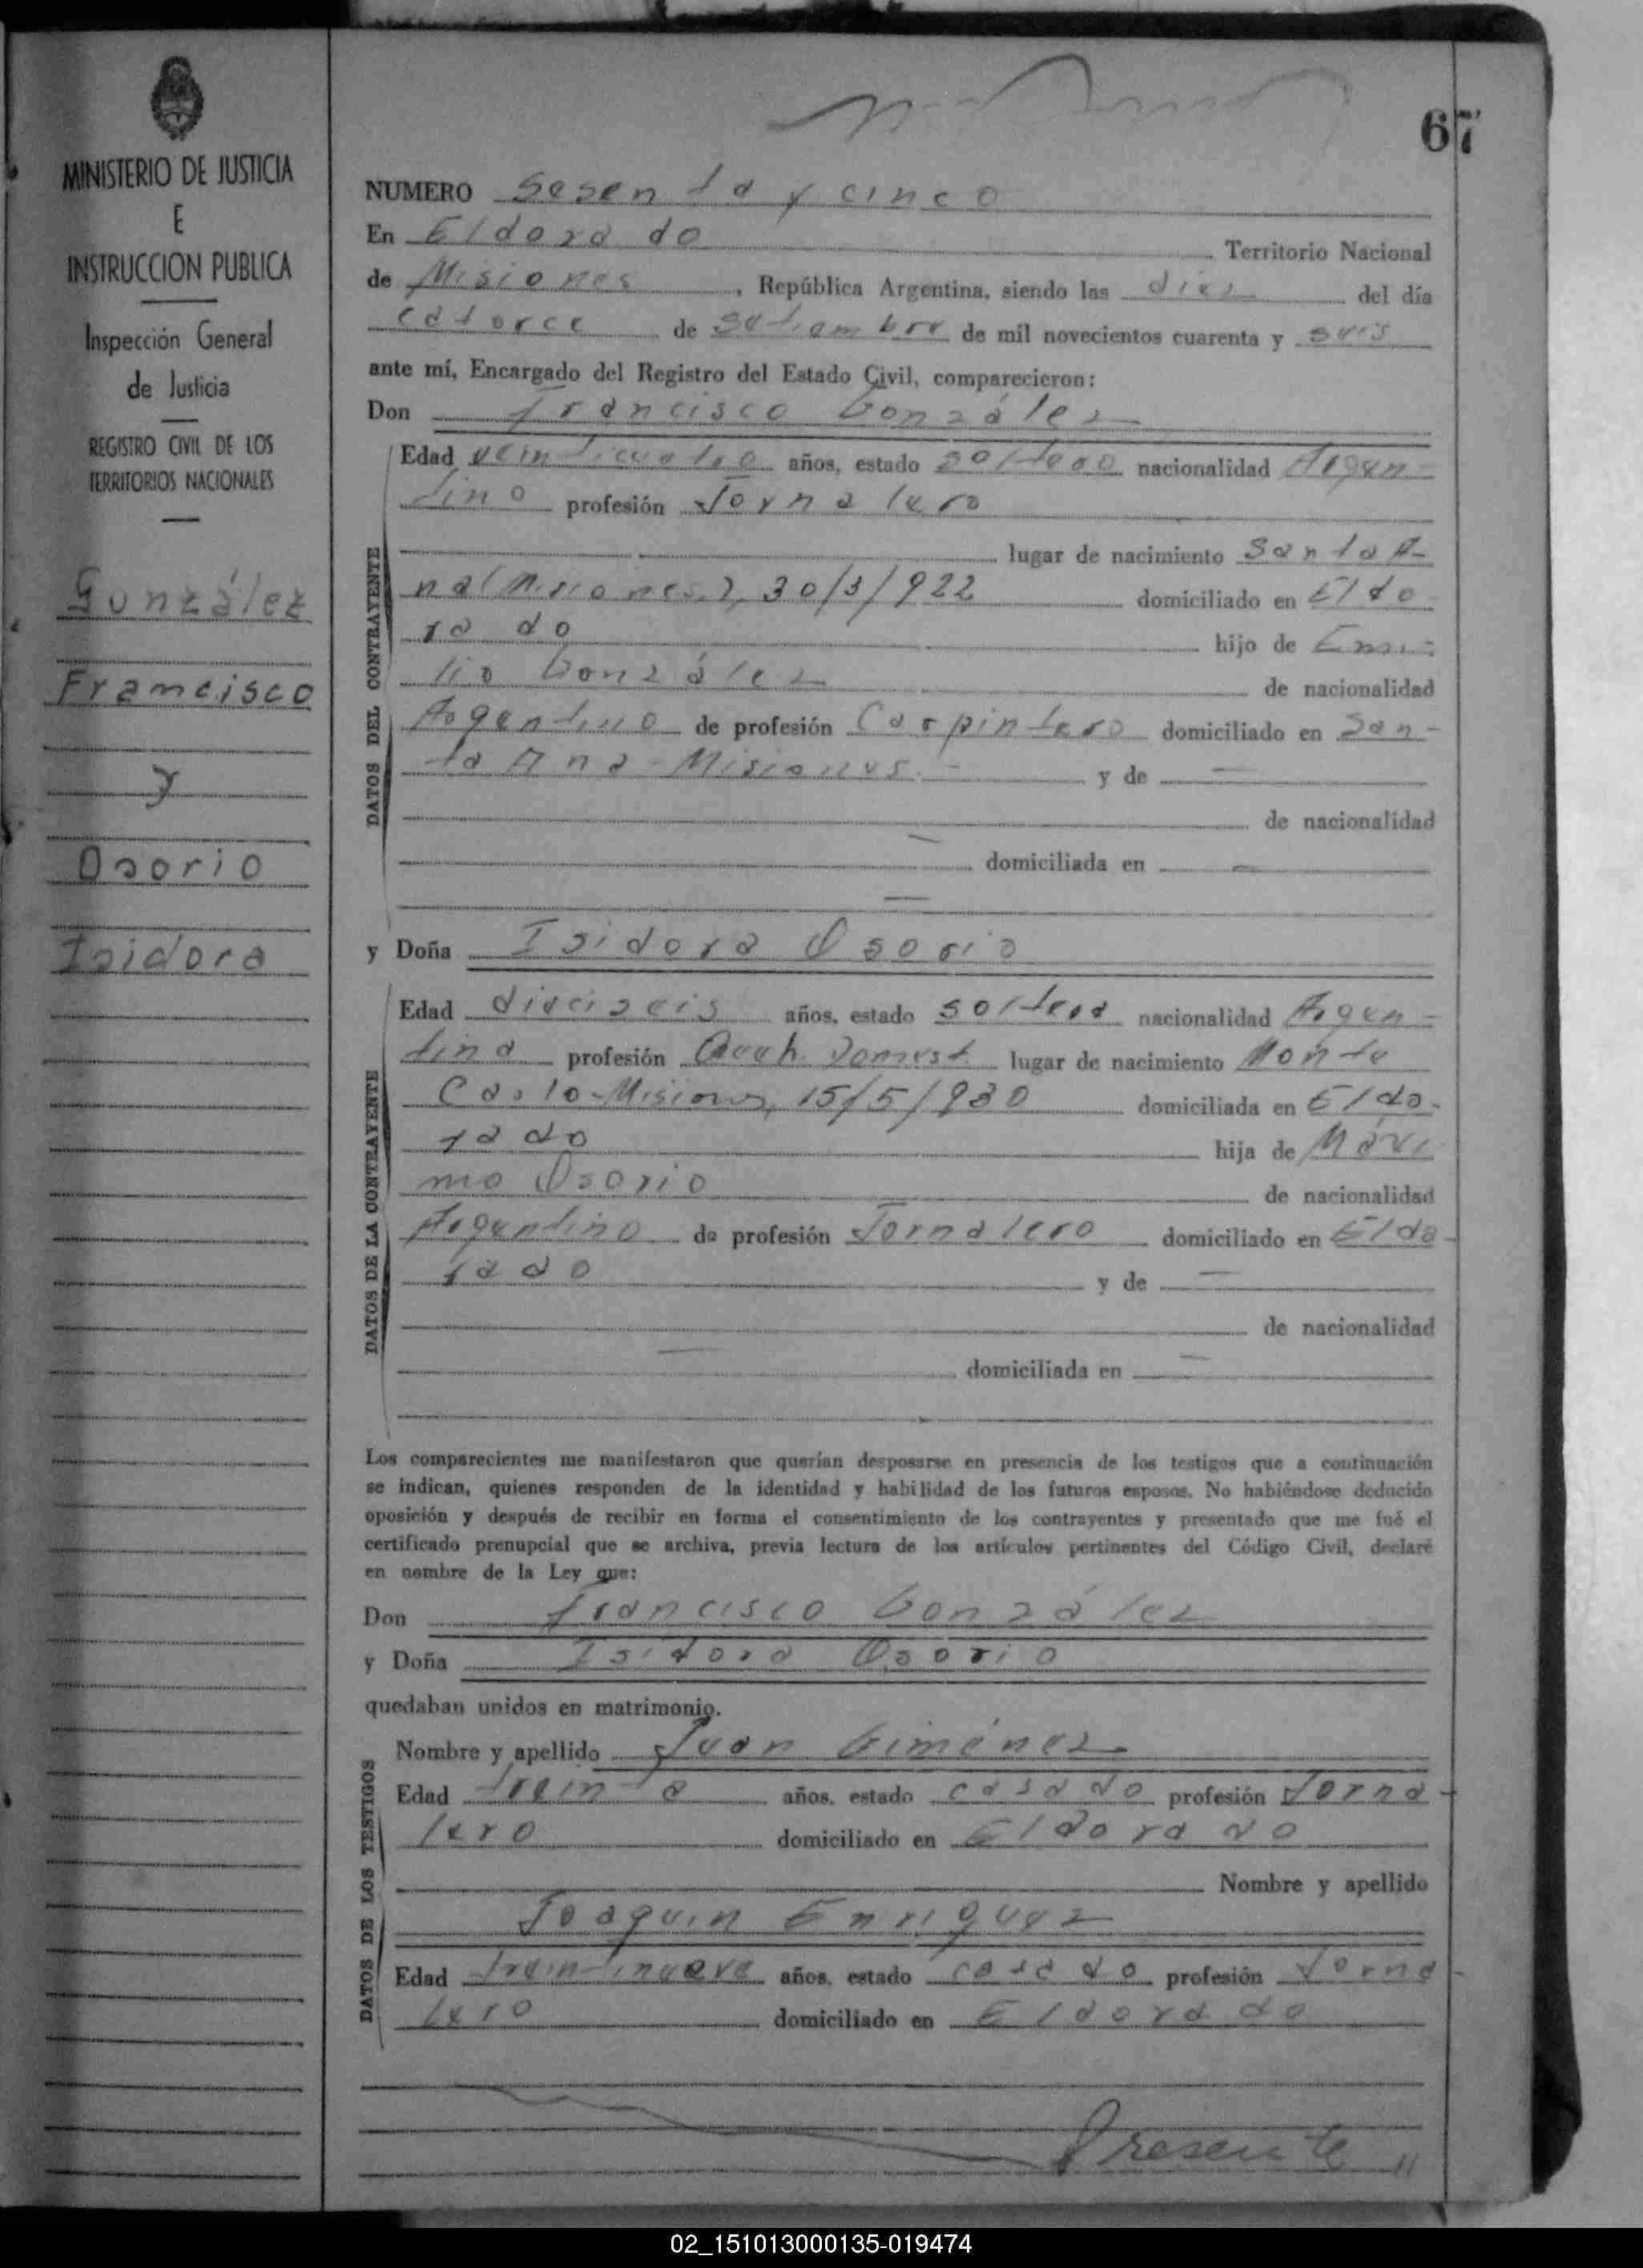 67
MINISTERIO DE JUSTICIA
E
INSTRUCCION PUBLICA
Inspección General
de Justicia
REGISTRO CIVIL DE LOS
TERRITORIOS NACIONALES
González
Francisco
y
Osorio
Isidora
NUMERO Sesenta y cinco
En Eldorado Territorio Nacional
de Misiones, República Argentina, siendo las diez del día
catorce de Setiembre de mil novecientos cuarenta y seis
ante mí, Encargado del Registro del Estado Civil, comparecieron:
Don Francisco González
DATOS DEL CONTRAYENTE
Edad veinticuatro años, estado soltero nacionalidad Argen-
tino profesión Jornalero
lugar de nacimiento Santa A-
na (Misiones), 30/3/922 domiciliado en Eldo-
rado hijo de Emi-
lio González de nacionalidad
Argentino de profesión Carpintero domiciliado en San-
ta Ana - Misiones.- y de —
de nacionalidad
— domiciliada en —
—
y Doña Isidora Osorio
DATOS DE LA CONTRAYENTE
Edad dieciseis años, estado soltera nacionalidad Argen-
tina profesión Domest lugar de nacimiento Monte
Carlo-Misiones, 15/5/930 domiciliada en Eldo-
rado hija de Máxi
mo Osorio de nacionalidad
Argentino de profesión Jornalero domiciliado en Eldo-
rado y de —
de nacionalidad
— domiciliada en —
Los comparecientes me manifestaron que querían desposarse en presencia de los testigos que a continuación
se indican, quienes responden de la identidad y habilidad de los futuros esposos. No habiéndose deducido
oposición y después de recibir en forma el consentimiento de los contrayentes y presentado que me fué el
certificado prenupcial que se archiva, previa lectura de los artículos pertinentes del Código Civil, declaré
en nombre de la Ley que:
Don Francisco González
y Doña Isidora Osorio
quedaban unidos en matrimonio.
DATOS DE LOS TESTIGOS
Nombre y apellido Juan Giménez
Edad treinta años, estado casado profesión Jorna-
lero domiciliado en Eldorado
Nombre y apellido
Joaquin Enriquez
Edad treintinueve años, estado casado profesión Jorna-
lero domiciliado en Eldorado
Presente //
02_151013000135-019474